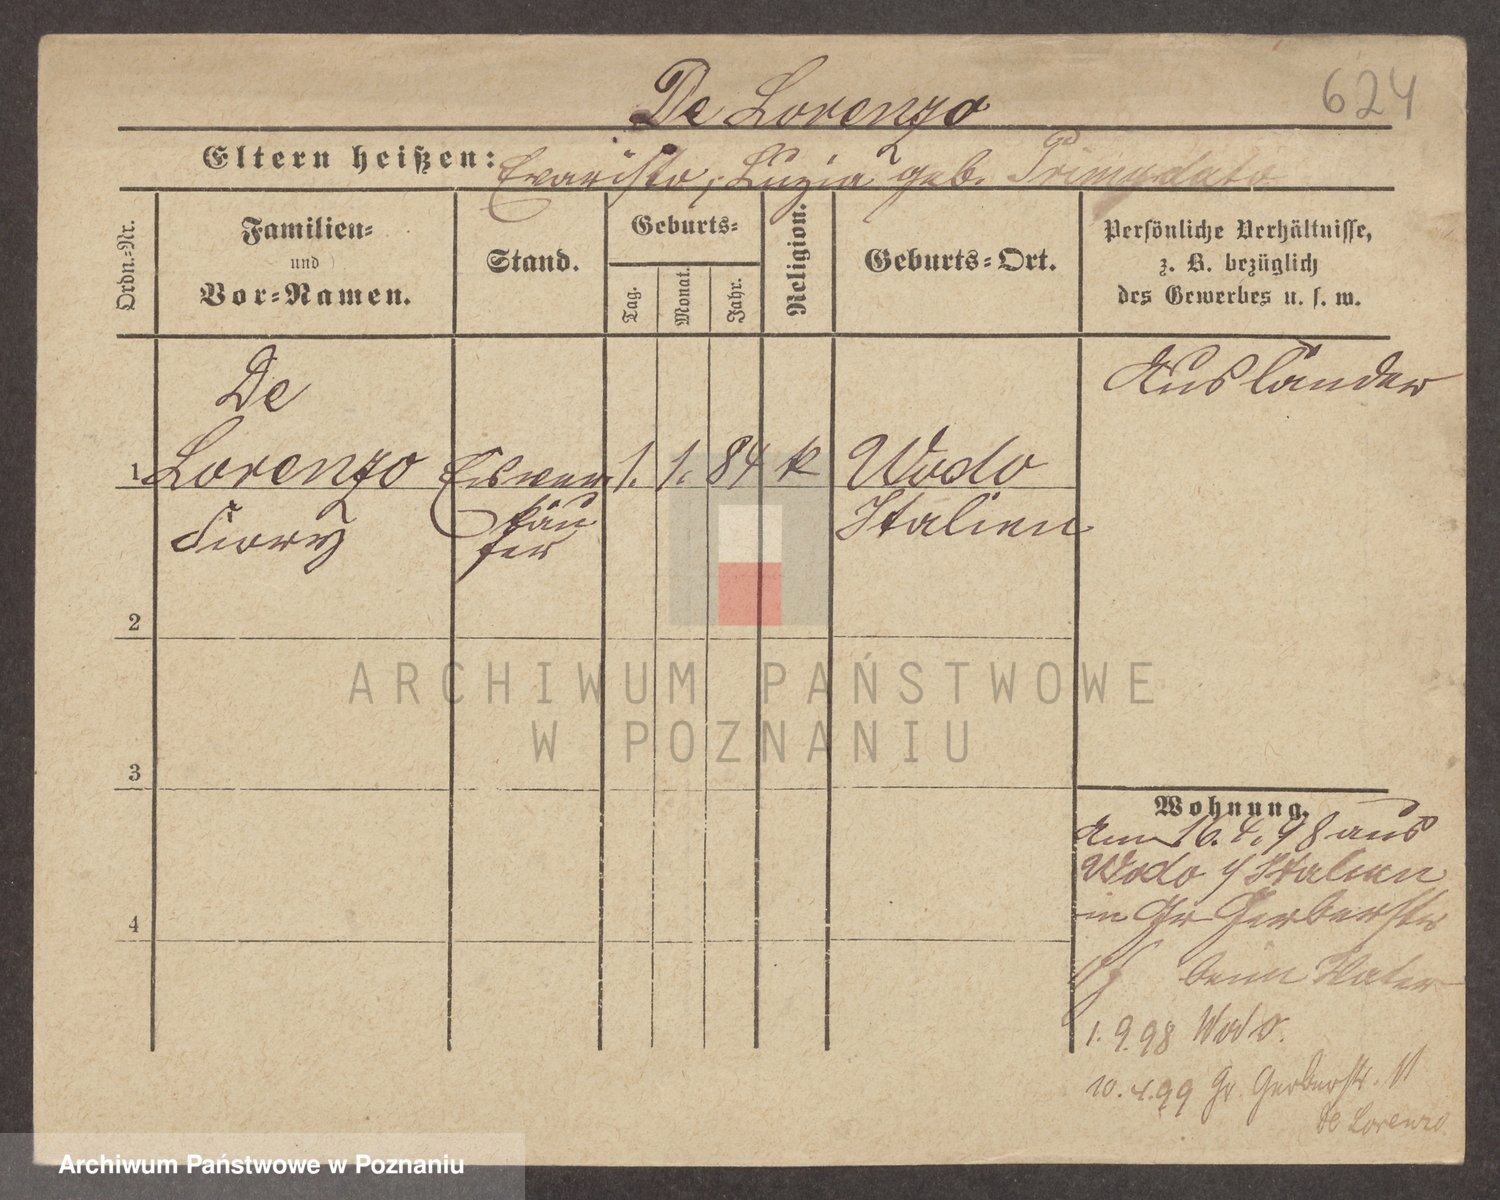 624
De Lorenzo
Eltern heißen: Evaristo, Luzia geb.
Ordn.-Nr.
Familien-
und
Vor-Namen.
Stand.
Geburts-
Tag.
Monat.
Jahr.
Religion.
Geburts-Ort.
Persönliche Verhältnisse,
z. B. bezüglich
des Gewerbes u. s. w.
Ausländer
De
1 Lorenzo Eisver 1. 1. 84 k Wodo
käu Italien
fer
2
3
4
Wohnung.
Am 16.4.98 aus
Wodo / Italien
in Gr Gerberstr
beim Vater
1.9.98 Wodo.
10.4.99 Gr. Gerberstr.
De Lorenzo
ARCHIWUM PAŃSTWOWE
W POZNANIU
Archiwum Państwowe w Poznaniu